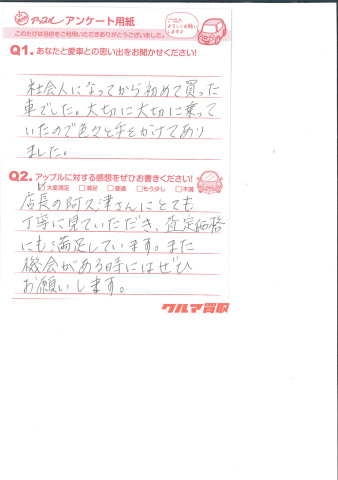 アップル アンケート用紙
このたびは当店をご利用いただきありがとうございました。
ご協力
よろしくお願い
します♪
Q1. あなたと愛車との思い出をお聞かせください!
社会人になってから初めて買った
車でした。大切に大切に乗って
いたので色々と手をかけてあり
ました。
Q2. アップルに対する感想をぜひお書きください!
☑大変満足 □満足 □普通 □もう少し □不満
店長の阿久津さんにとても
丁寧に見ていただき、査定価格
にも満足しています。また
機会がある時にはぜひ
お願いします。
クルマ買取